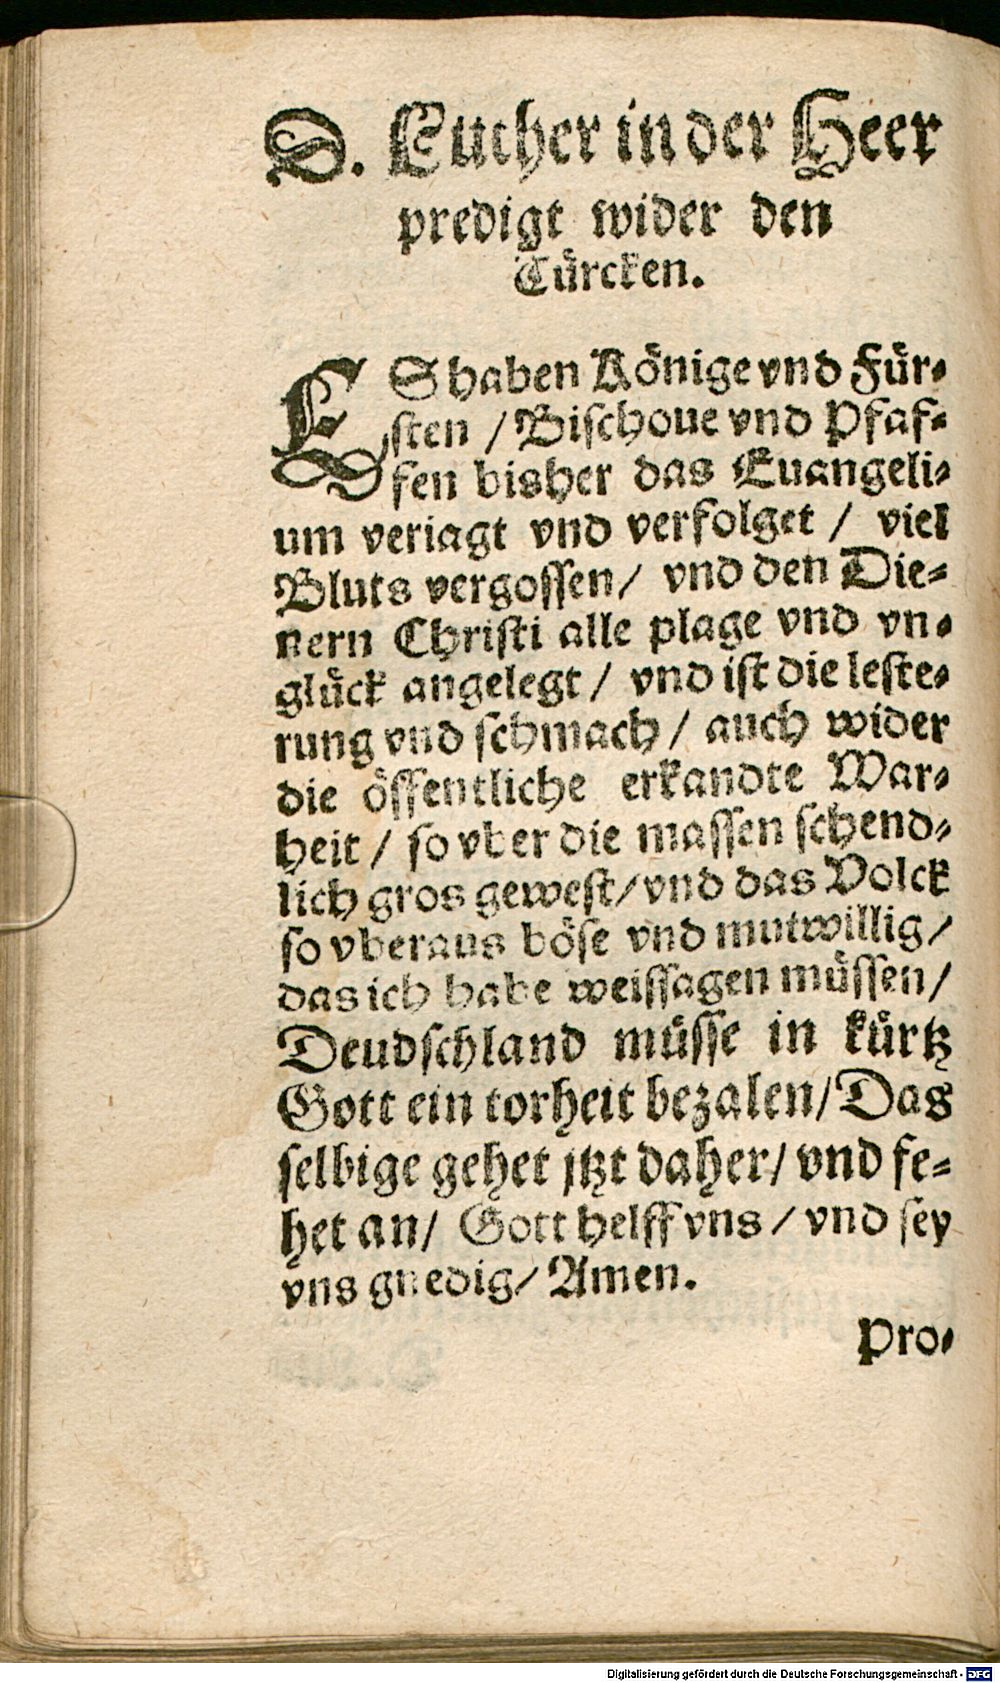 D. Luther in der Heer
predigt wider den
Türcken.
ES haben Könige vnd Für-
sten / Bischoue vnd Pfaf-
fen bisher das Euangeli-
um veriagt vnd verfolget / viel
Bluts vergossen / vnd den Die-
nern Christi alle plage vnd vn-
glück angelegt / vnd ist die leste-
rung vnd schmach / auch wider
die öffentliche erkandte War-
heit / so vber die massen schend-
lich gros gewest / vnd das Volck
so vberaus böse vnd mutwillig /
das ich habe weissagen müssen /
Deudschland müsse in kürtz
Gott ein torheit bezalen / Das
selbige gehet jtzt daher / vnd fe-
het an / Gott helff vns / vnd sey
vns gnedig / Amen.
Pro-
Digitalisierung gefördert durch die Deutsche Forschungsgemeinschaft - DFG